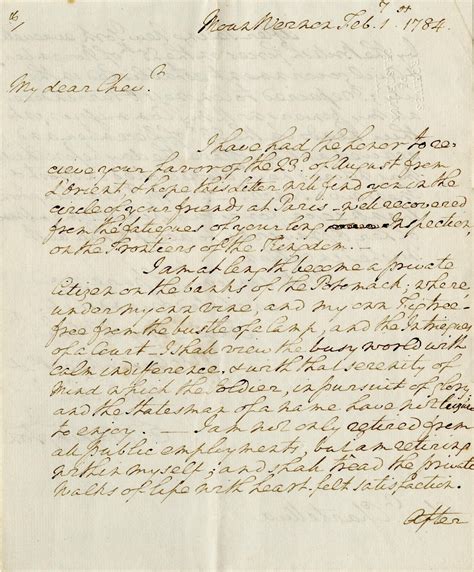 Mount Vernon Feb.y 1.st 1784.
My dear Chev.r
I have had the honor to re-
cieve your favor of the 23d. of August from
L'Orient, & hope this letter will find you in the
circle of your friends at Paris, well recovered
from the fatiegues of your long Inspection,
on the Frontiers of the Kingdom.—
I am at length become a private
citizen on the banks of the Potomack, where
under my own vine, and my own Fig tree—
free from the bustle of a camp, and the Intriegues
of a Court, I shall view the busy world with
calm indiference, & with that serenity of
mind which the Soldier, in pursuit of glory,
and the Statesman of a name have not leisure
to enjoy.— I am not only retired from
all public employments, but am retiring
within myself; and shall tread the private
walks of life with heart felt satisfaction.
After